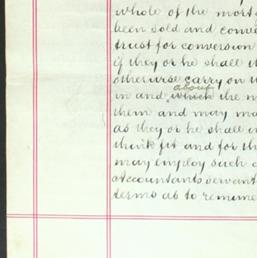 whole of the mort
been sold and conve
trust for conversion
if they or he shall
otherwise carry on
about
in and which the m
them and may ma
as they or he shall in
think fit and for th
may employ such
accountants servant
terms as to remune